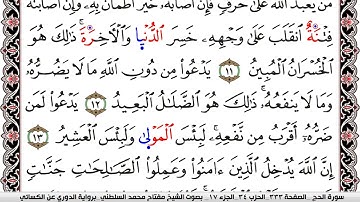 مَن يَعْبُدُ اللَّهَ عَلَىٰ حَرْفٍ فَإِنْ أَصَابَهُ خَيْرٌ اطْمَأَنَّ بِهِ وَإِنْ أَصَابَتْهُ
فِتْنَةٌ انقَلَبَ عَلَىٰ وَجْهِهِ خَسِرَ الدُّنْيَا وَالْآخِرَةَ ذَٰلِكَ هُوَ
الْخُسْرَانُ الْمُبِينُ ١١ يَدْعُوا مِن دُونِ اللَّهِ مَا لَا يَضُرُّهُ
وَمَا لَا يَنفَعُهُ ذَٰلِكَ هُوَ الضَّلَالُ الْبَعِيدُ ١٢ يَدْعُوا لَمَن
ضَرُّهُ أَقْرَبُ مِن نَّفْعِهِ لَبِئْسَ الْمَوْلَىٰ وَلَبِئْسَ الْعَشِيرُ ١٣
إِنَّ اللَّهَ يُدْخِلُ الَّذِينَ ءَامَنُوا وَعَمِلُوا الصَّالِحَاتِ جَنَّاتٍ
سورة الحج _ الصفحة ٣٣٣_ الحزب ٣٤_ الجزء ١٧ _ بصوت الشيخ مفتاح محمد السلطني _برواية الدوري عن الكسائي